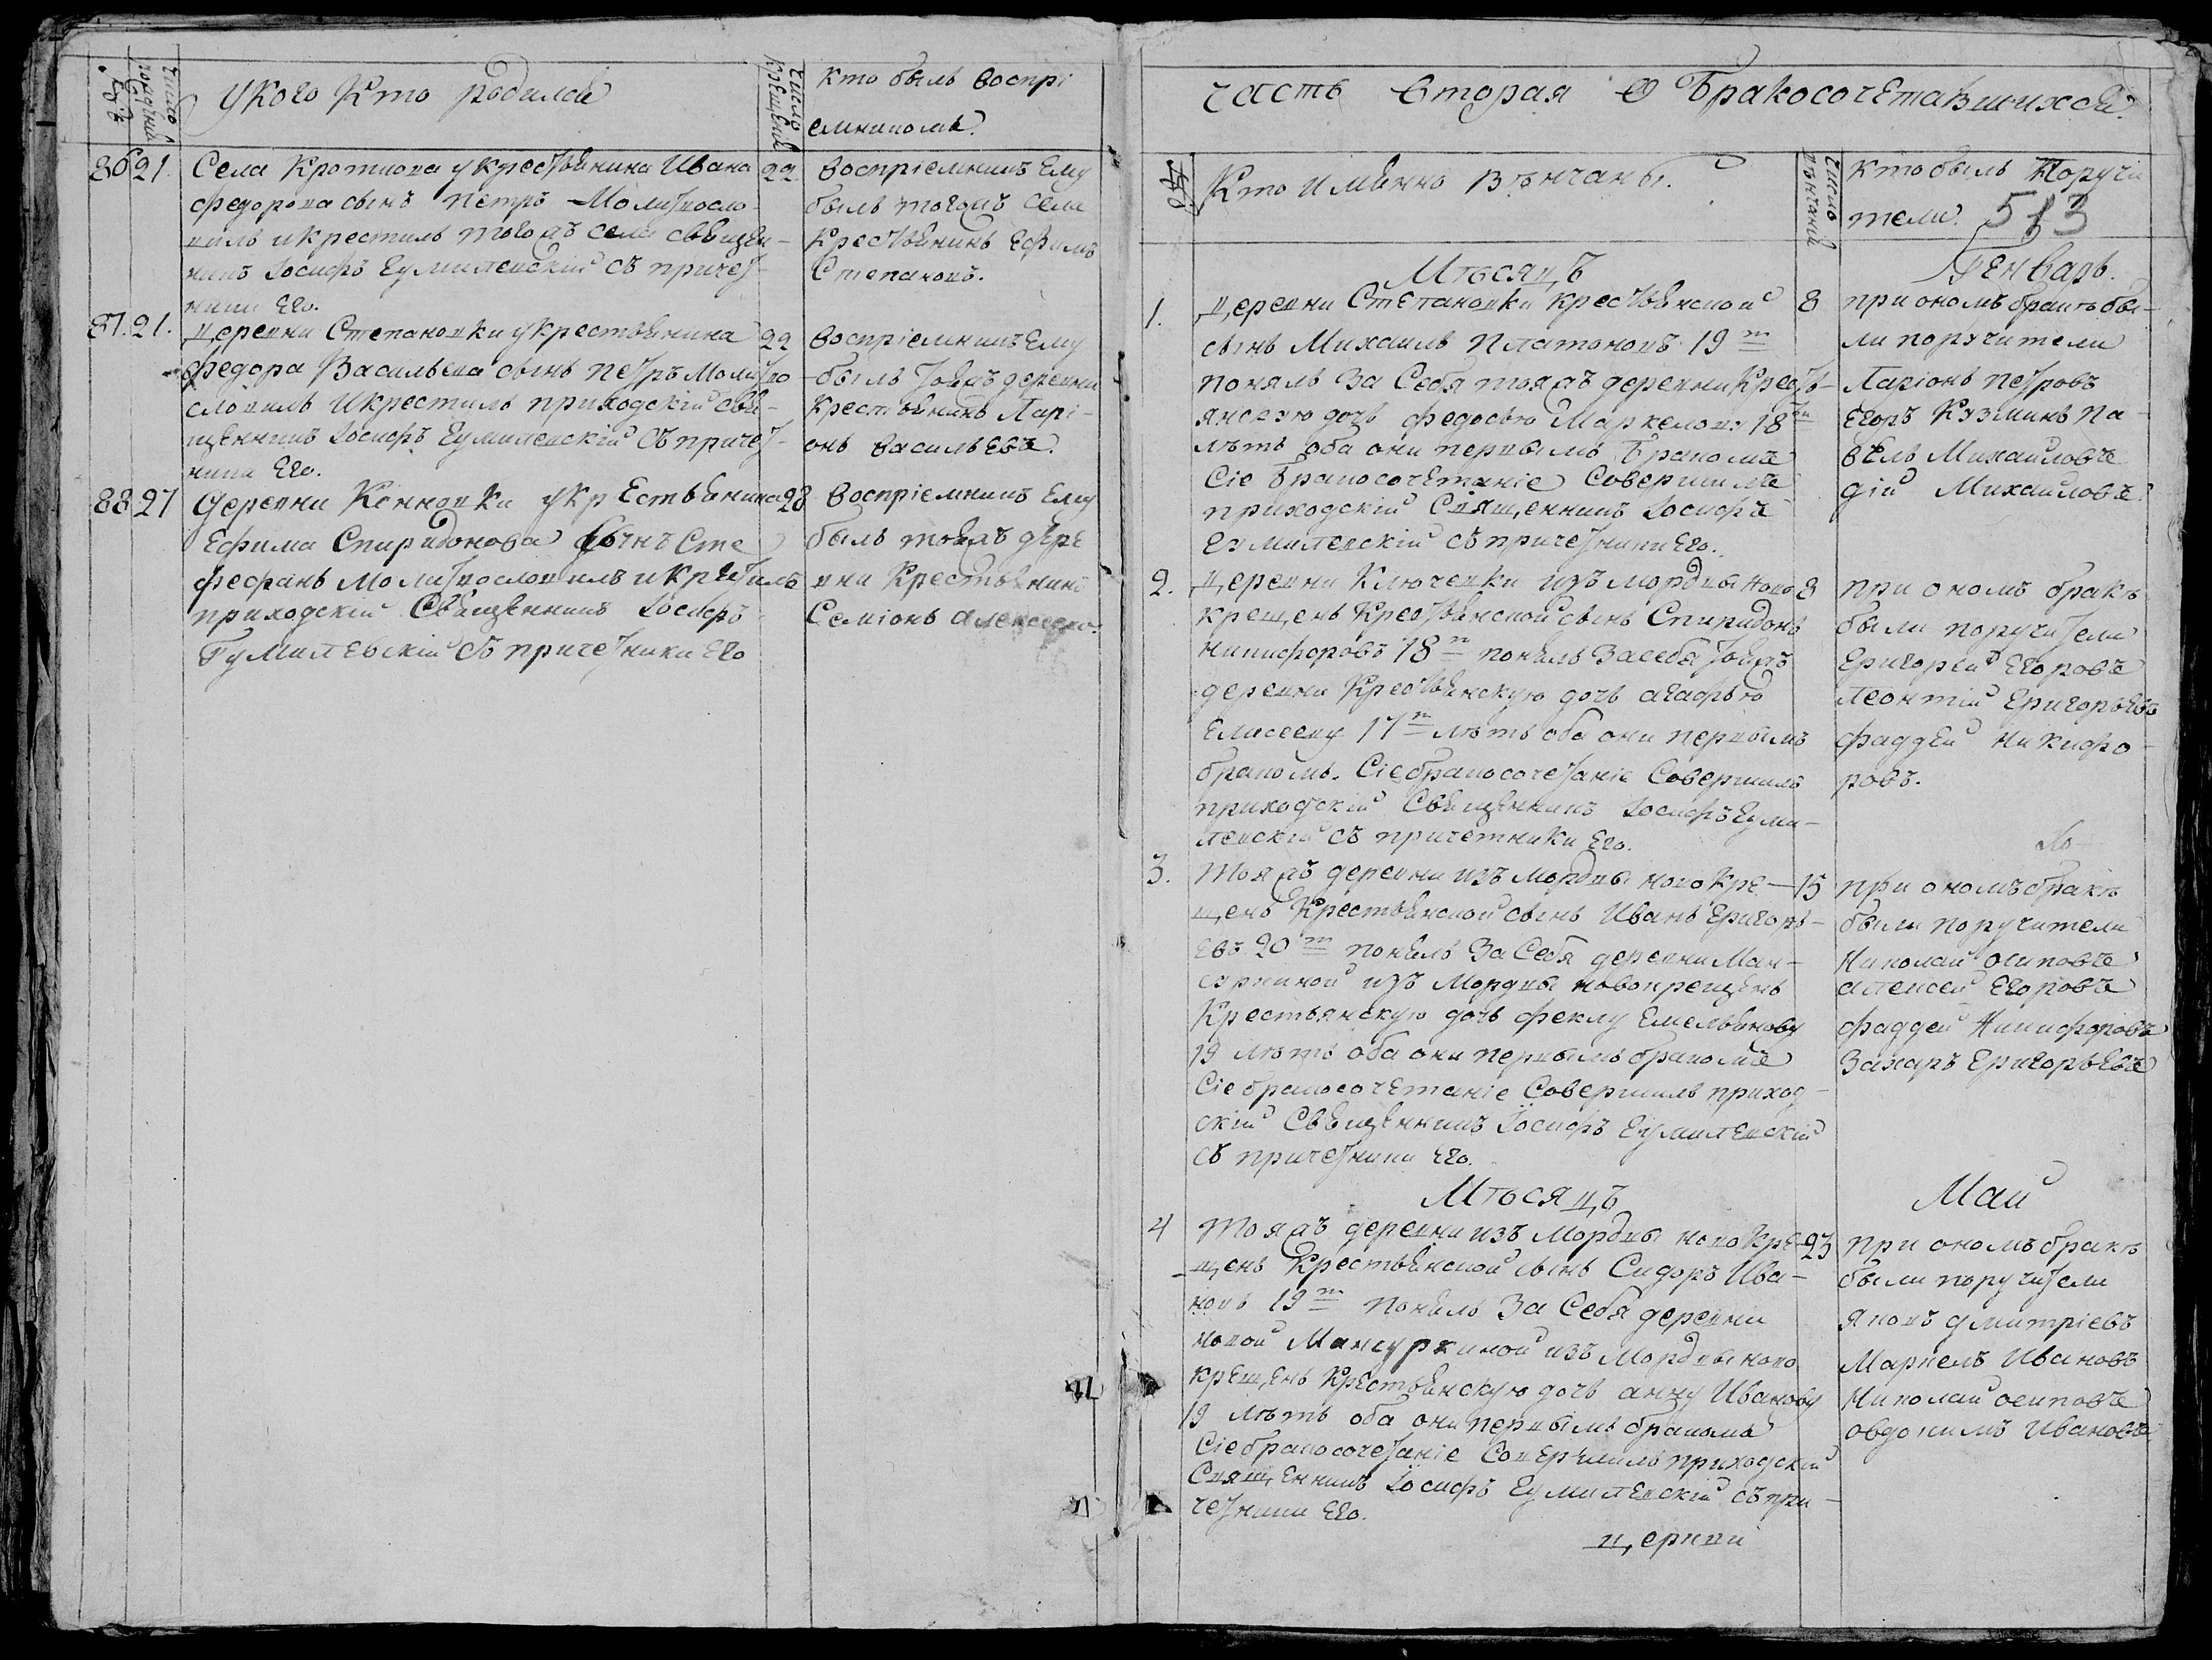 число
рождени
у кого кто родился
число
крещений
кто былъ воспрі
емникомъ.
86 21. Села Кроткова у крестьянина Ивана 22
федорова сынъ Петръ Молитвосло-
вилъ и крестилъ тогожъ села священ-
никъ Іосифъ Гумилевскій съ причет-
ники Его.
воспріемникъ Ему
былъ тогожъ села
Крестьянинъ Ефимъ
Степановъ.
87. 21. Деревни Степановки у крестьянина 22
федора Васильева сынъ петръ Молитво
словилъ и крестилъ приходскій свя-
щенникъ Іосифъ Гумилевскій съ причет-
ники Его.
воспріемникъ Ему
былъ тояжъ деревни
крестьянинъ Ларі-
онъ васильевъ.
88 27 Деревни Конновки у крестьянина 28
Ефима Спиридонова сынъ Сте
фанъ Молитвословилъ и крестилъ
приходскій Священникъ Іосифъ
Гумилевскій съ причетники Его
воспріемникъ Ему
былъ тояжъ дере
вни Крестьянинъ
Семіонъ Алексеевъ.
часть вторая О Бракосочетавшихся.
Кто именно вѣнчаны.
число
вѣнчаній
кто былъ Поручи
тели. 513
Мѣсяцъ Генварь.
1. Деревни Степановки крестьянской 8
сынъ Михаилъ Платоновъ 19 т
понялъ за Себя тояжъ деревни Кресть-
янскую дочь федосью Маркелову 18 ти
лѣтъ оба они первымъ бракомъ
Сіе бракосочетаніе Совершилъ
приходскій Священникъ Іосифъ
Гумилевскій съ причетники Его.
при ономъ бракѣ бы-
ли поручители
Ларіонъ петровъ
Егоръ Кузминъ Па-
велъ Михаиловъ
дій Михаиловъ.
2. Деревни Ключевки изъ мордвы ново 8
крещенъ Крестьянской сынъ Спиридонъ
никифоровъ 18 т понялъ за себя тояжъ
деревни Крестьянскую дочь агафью
Елисееву 17 т лѣтъ оба они первымъ
бракомъ. Сіе бракосочетаніе Совершилъ
приходскій Священникъ Іосифъ Гуми-
левскій съ причетники Его.
при ономъ бракѣ
были поручители
Григореи Егоровъ
леонтій Григорьевъ
фаддеи Никифо-
ровъ.
3. Тояжъ деревни изъ мордвы новокре- 15
щенъ Крестьянской сынъ Иванъ Григорь-
евъ 20 т понялъ за Себя деревни Ман-
суркиной изъ Мордвы новокрещенъ
Крестьянскую дочь феклу Емельянову
19 лѣтъ оба они первымъ бракомъ
Сіе бракосочетаніе Совершилъ приход-
скій Священникъ Іосифъ Гумилевскій
съ причетники Его.
при ономъ бракѣ
были поручители
Николаи осиповъ
алексеи Егоровъ
фаддеи Никифоровъ
Захаръ Григорьевъ
Мѣсяцъ Маи
4 Тояжъ деревни изъ мордвы новокре- 23
щенъ Крестьянской сынъ Сидоръ Ива-
новъ 19 т понялъ за Себя деревни
новой Мансуркиной изъ Мордвы ново
крещенъ Крестьянскую дочь анну Иванову
19 лѣтъ оба они первымъ бракомъ
Сіе бракосочетаніе Совершилъ приходскій
Священникъ Іосифъ Гумилевскій съ при-
четники Его.
при ономъ бракѣ
были поручители
Яковъ дмитріевъ
Маркелъ Ивановъ
Николаи осиповъ
овдокимъ Ивановъ
церкви